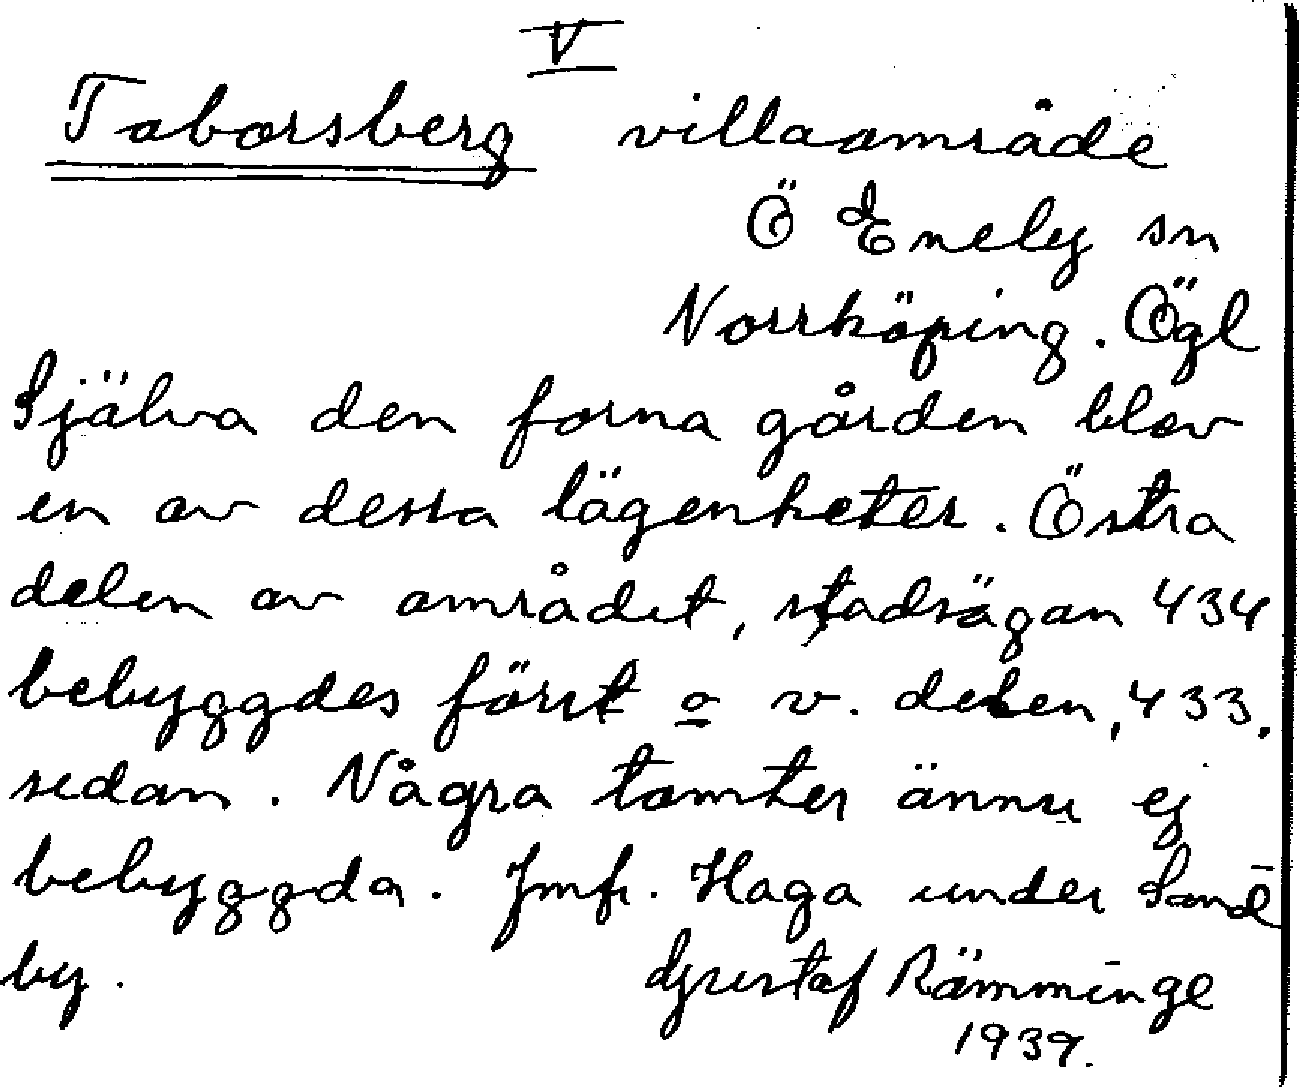 V
Taborsberg villaområde
Ö Eneby sn
Norrköping. Ögl
Själva den forna gården blev
en av dessa lägenheter. Östra
delen av området, stadsägan 434
bebyggdes först o v. delen, 433,
sedan. Några tomter ännu ej
bebyggda. Jmfr. Haga under Sand
by. Gustaf Rämminge
1939.